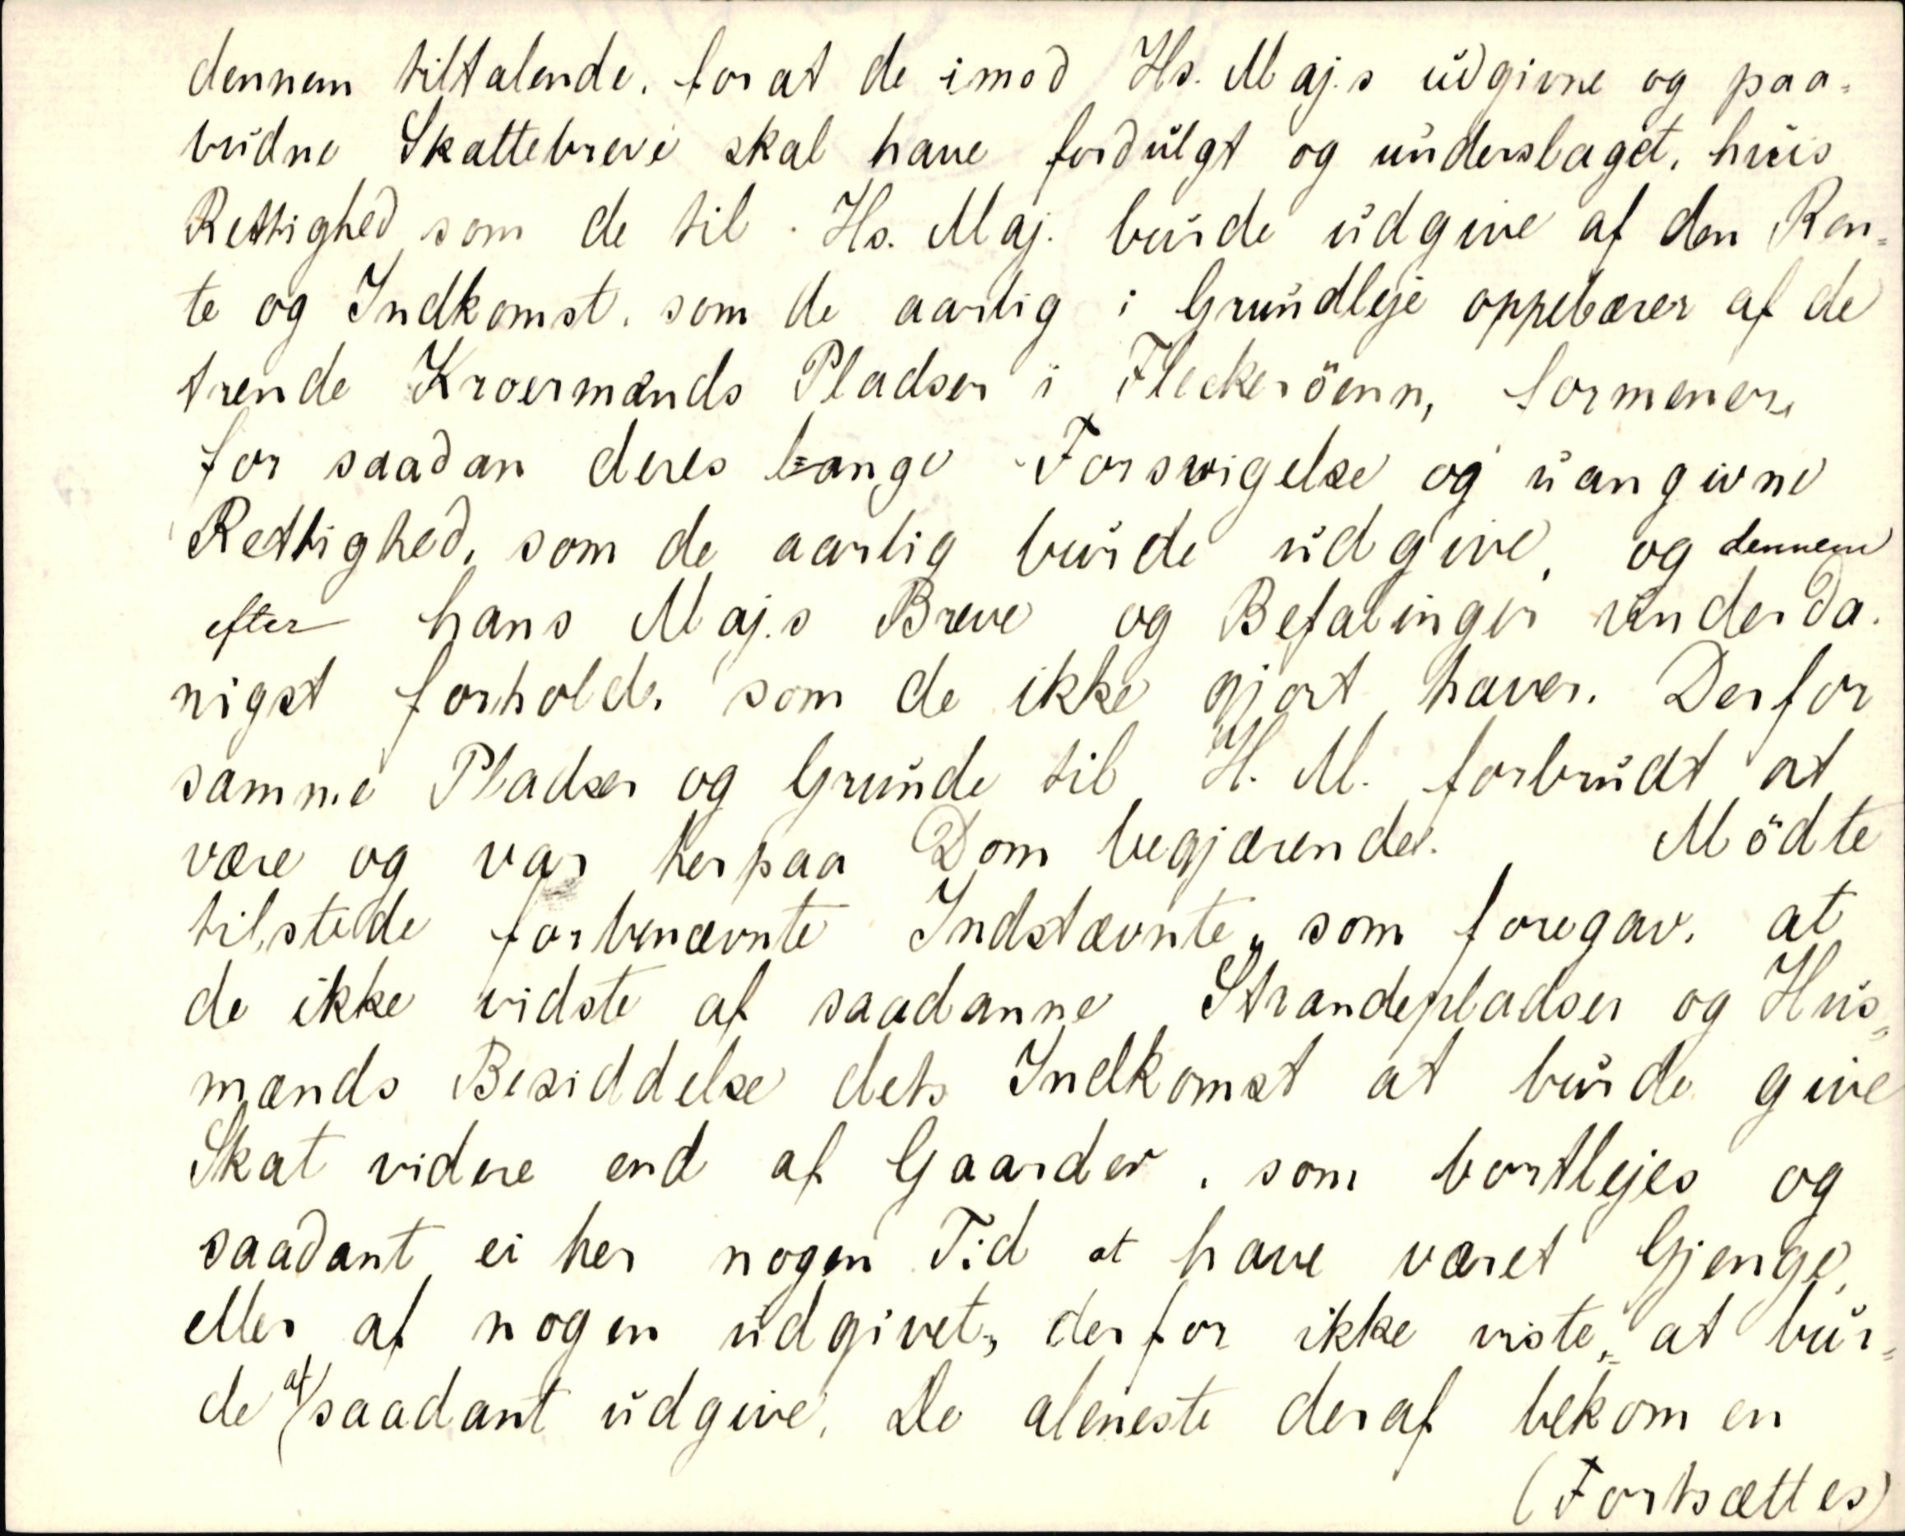 dennem tiltalende, for at de imod Hs. Maj.s udgivne og paa-
budne Skattebreve skal have fordulgt og underslaget, huis
Rettighed som de til Hs. Maj. burde udgive af den Ren-
te og Indkomst, som de aarlig i Grundleje oppebærer af de
trende Kroermænds Pladser i Fleckeröenn, formener,
for saadan deres lange Forsvigelse og uangivne
Rettighed, som de aarlig burde udgive, og dennem
efter hans Maj.s Breve og Befalinger underda-
nigst forhold, som de ikke gjort haver. Derfor
samme Pladser og Grunde til H. M. forbrudt at
være og var herpaa Dom begjærende. Mödte
tilstede forbenævnte Indstævnte, som foregav, at
de ikke vidste af saadanne Strandepladser og Hus-
mænds Besiddelse dets Indkomst at burde give
Skat videre end af Gaarder, som bortlejes og
saadant ei her nogen Tid at have været Gjenge,
eller af nogen udgivet, derfor ikke viste, at bur-
de af saadant udgive, De aleneste deraf bekom en
(Fortsættes)